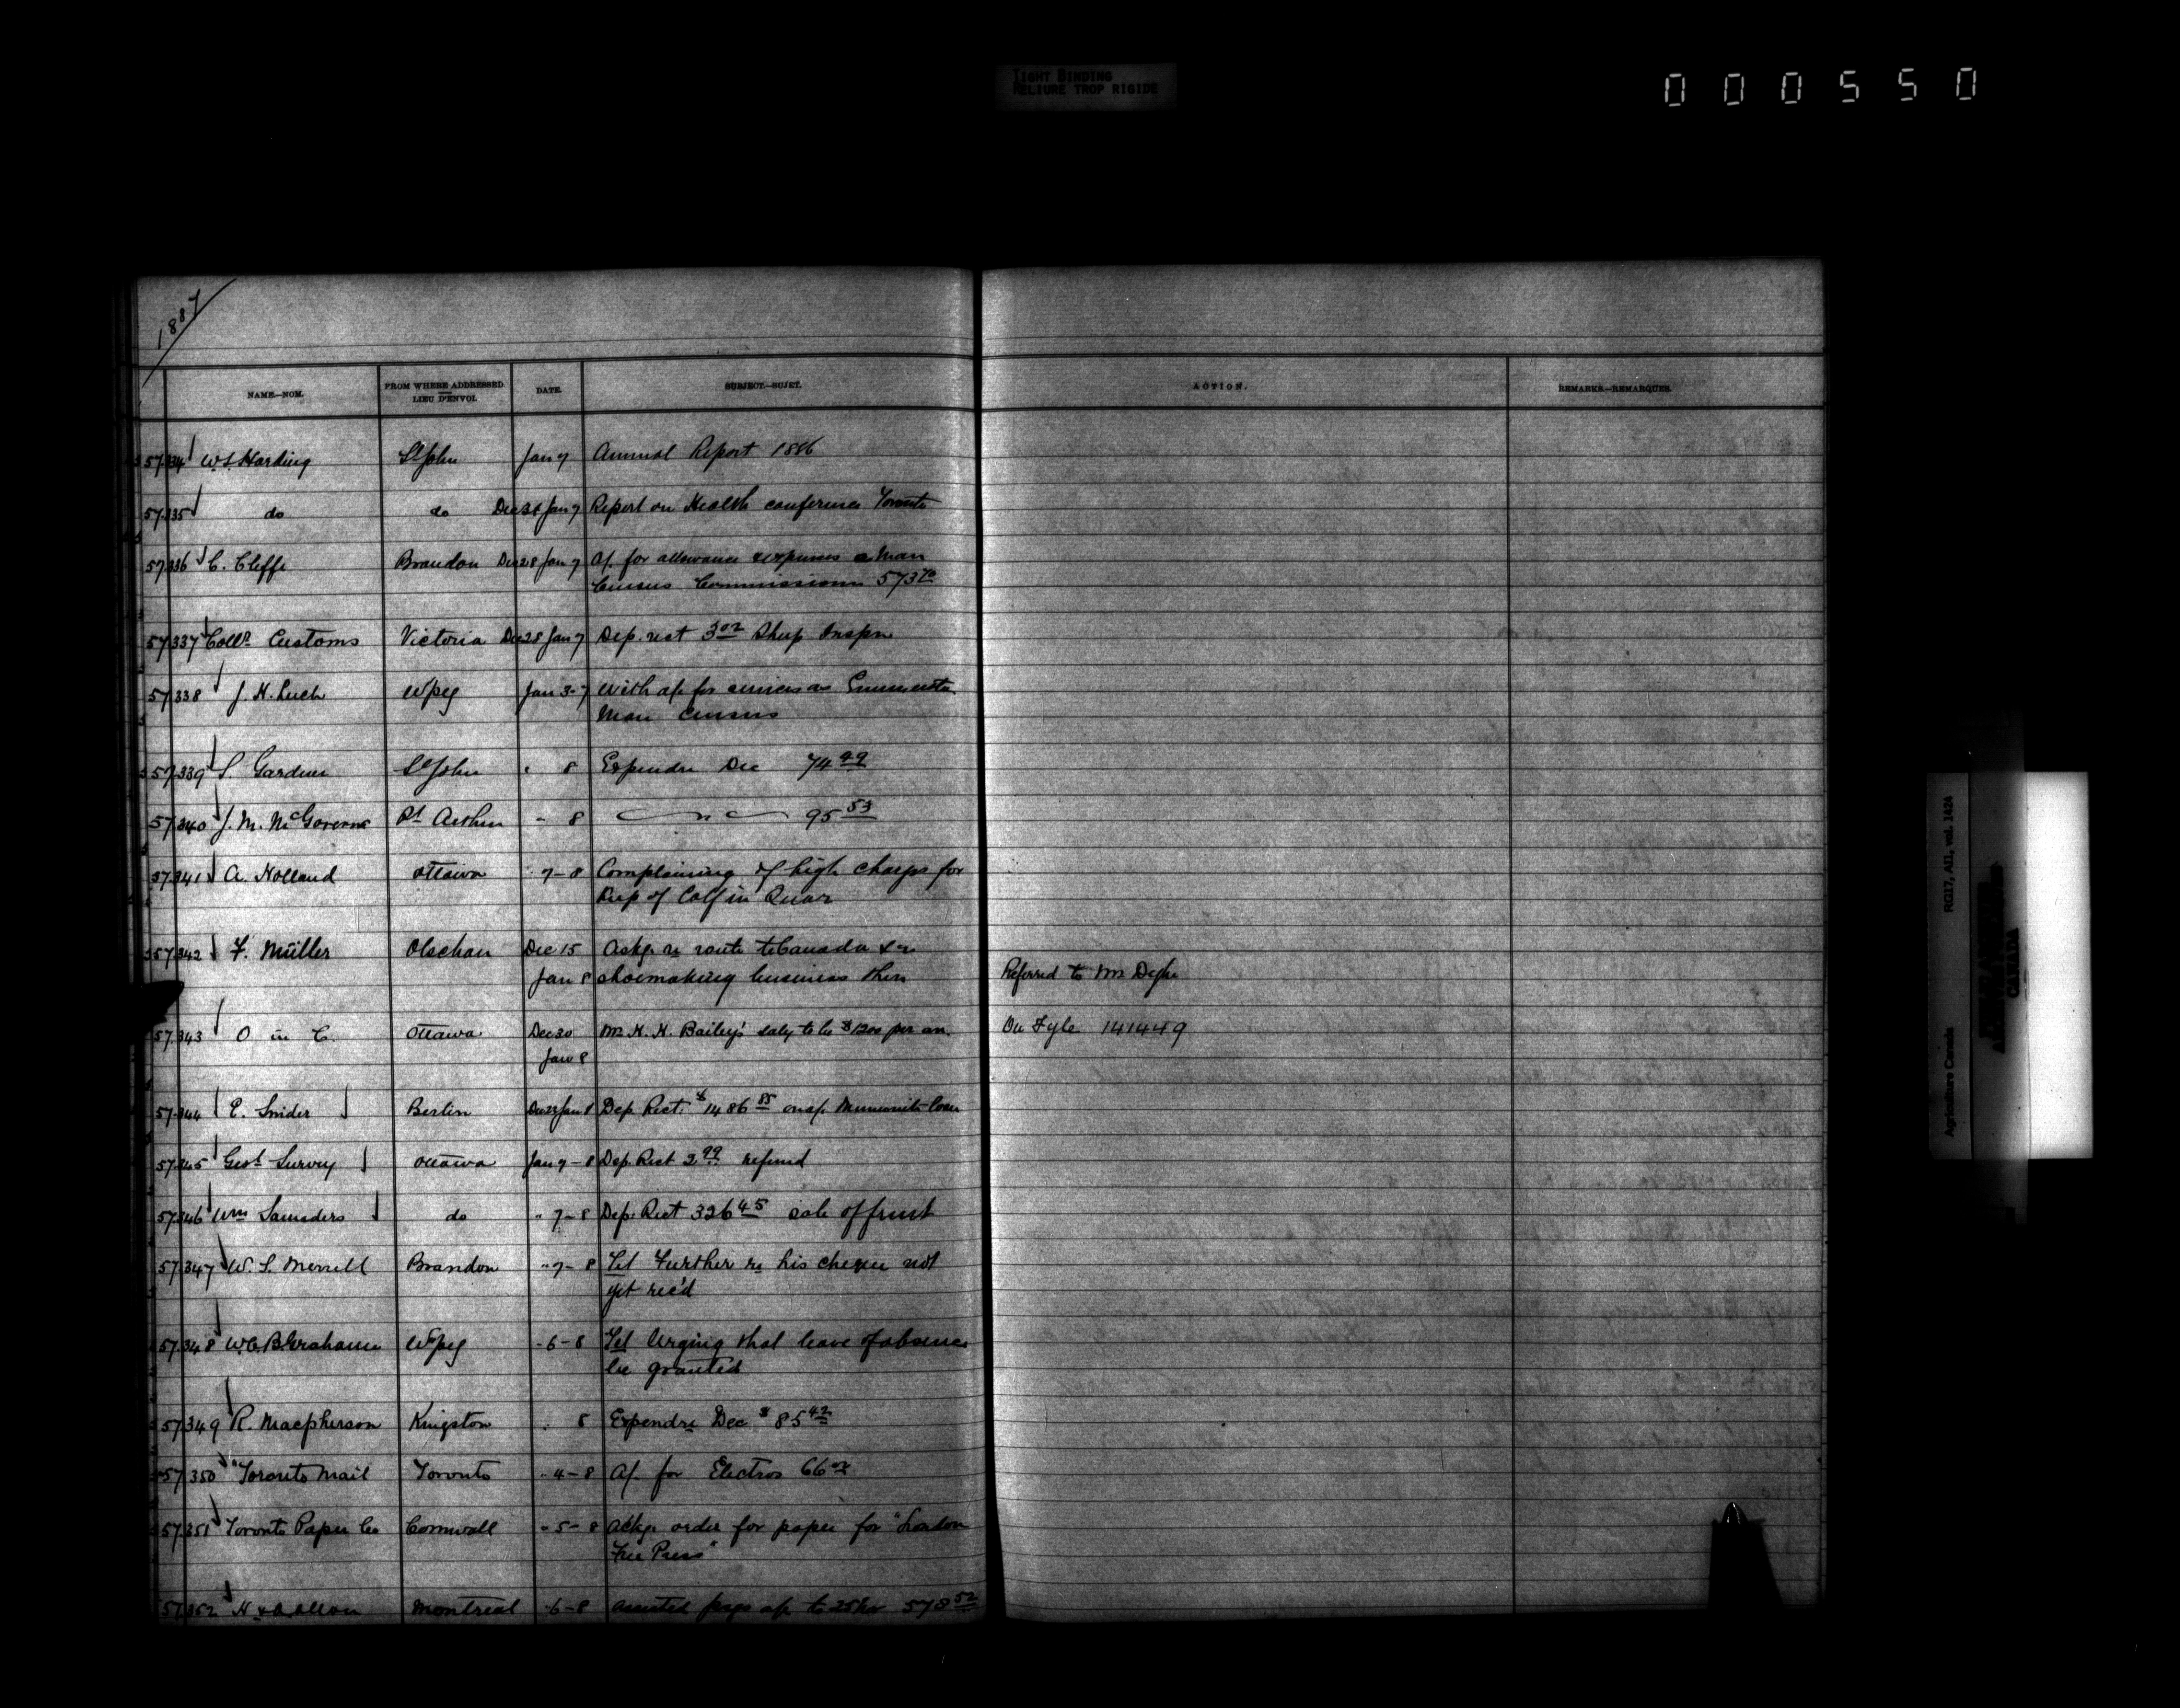 TIGHT BINDING
RELIURE TROP RIGIDE
000550
1887
NAME.—NOM. FROM WHERE ADDRESSED LIEU D'ENVOI. DATE. SUBJECT.—SUJET. ACTION. REMARKS.—REMARQUES.
57334 W.S. Harding St John Jan 7 Annual Report 1886
57335 do do Jan 7 Report on Health conference Toronto
57336 C. Cliffe Brandon Dec 28 Jan 7 a/. for allowance expenses Man
Census Commissioner
57337 Collr Customs Victoria Dec 28 Jan 7 Dep. rect 3 02 Inspn
57338 J. H. Wpg Jan 3-7 With a/c for services as
Man Census
57339 S. Gardner St John " 8 Expendre Dec 74 99
57340 J. M. McGovern Pt Arthur " 8 95 53
57341 A. Holland Ottawa 7-8 Complaining of high charges for
of Calf in Quar
57342 F. Müller Olschan Dec 15 Askg. re route to Canada & re
Jan 8 shoemaking business there Referred to Mr
57343 O in C. Ottawa Dec 30 Mr H. H. Bailey's saly to be $1200 per an. On Fyle 141449
Jan 8
57344 E. Snider Berlin Jan 8 Dep. Rect. $1486 85 Mennonite loan
57345 Geol Survey Ottawa Jan 7-8 Dep. Rect 2 99 refund
57346 Wm Saunders do " 7-8 Dep. Rect 326 45 sale of fruit
57347 W. S. Merrill Brandon " 7-8 Tel Further re his cheque not
yet rec'd
57348 W. C. B. Grahame Wpeg - 6-8 Tel Urging that leave of absence
be granted
57349 R. Macpherson Kingston 8 Expendre Dec $85 42
57350 "Toronto Mail Toronto " 4-8 a/. for Electros 66
57351 Toronto Paper Co Cornwall " 5-8 Ackg. order for paper for "London
Free Press"
57352 H & A Allan Montreal -6-8 assisted psgs a/c to 25 578 52
Agriculture Canada RG17, AII, vol. 1424
CANADA